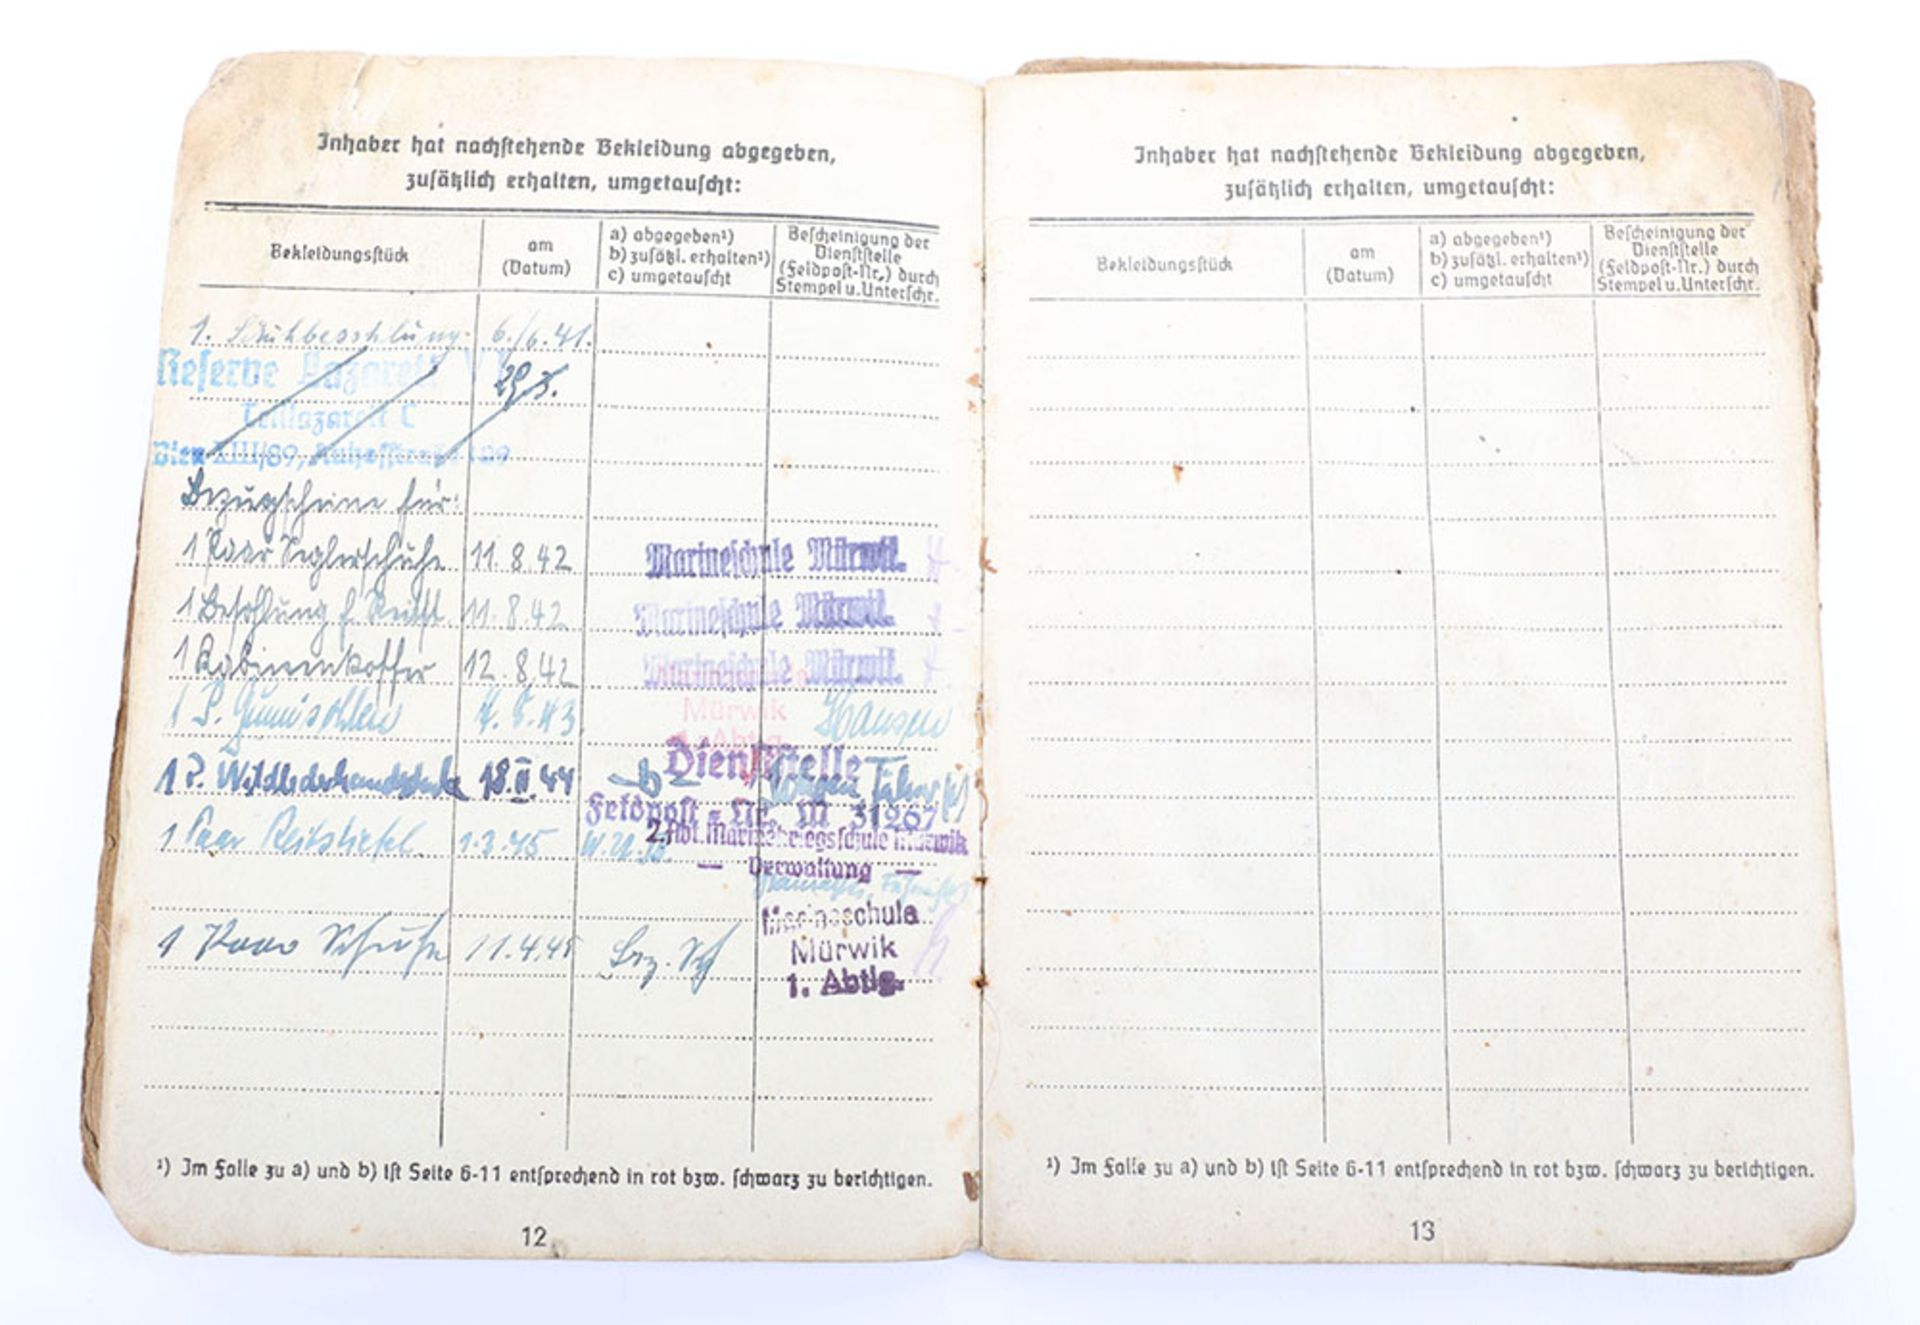 Inhaber hat nachstehende Bekleidung abgegeben,
zusätzlich erhalten, umgetauscht:
Bekleidungsstück
am
(Datum)
a) abgegeben¹)
b) zusätzl. erhalten¹)
c) umgetauscht
Bescheinigung der
Dienststelle
(Feldpost-Nr.) durch
Stempel u. Unterschr.
1. Schuhbesohlung 6./6.41.
Reserve Lazarett
Teillazarett C
Wien XIII/89,
Bezugscheine für:
1 Paar Seglerschuhe 11.8.42 Marineschule Mürwik.
1 Besohlung f. 11.8.42 Marineschule Mürwik.
1 Kabinenkoffer 12.8.42 Marineschule Mürwik.
1 P. Gummisohlen 4.5.43 Mürwik Hansen
Dienststelle
1 P. Wildlederhandschuhe 18.II.44 b
Feldpost-Nr. M 31267
1 Paar Reitstiefel 1.3.45 2. Abt. Marinekriegsschule Mürwik
— Verwaltung —
1 Paar Schuhe 11.4.45 Bez. Sch
Marineschule
Mürwik
1. Abtlg.
¹) Im Falle zu a) und b) ist Seite 6-11 entsprechend in rot bzw. schwarz zu berichtigen.
12
Inhaber hat nachstehende Bekleidung abgegeben,
zusätzlich erhalten, umgetauscht:
Bekleidungsstück
am
(Datum)
a) abgegeben¹)
b) zusätzl. erhalten¹)
c) umgetauscht
Bescheinigung der
Dienststelle
(Feldpost-Nr.) durch
Stempel u. Unterschr.
¹) Im Falle zu a) und b) ist Seite 6-11 entsprechend in rot bzw. schwarz zu berichtigen.
13